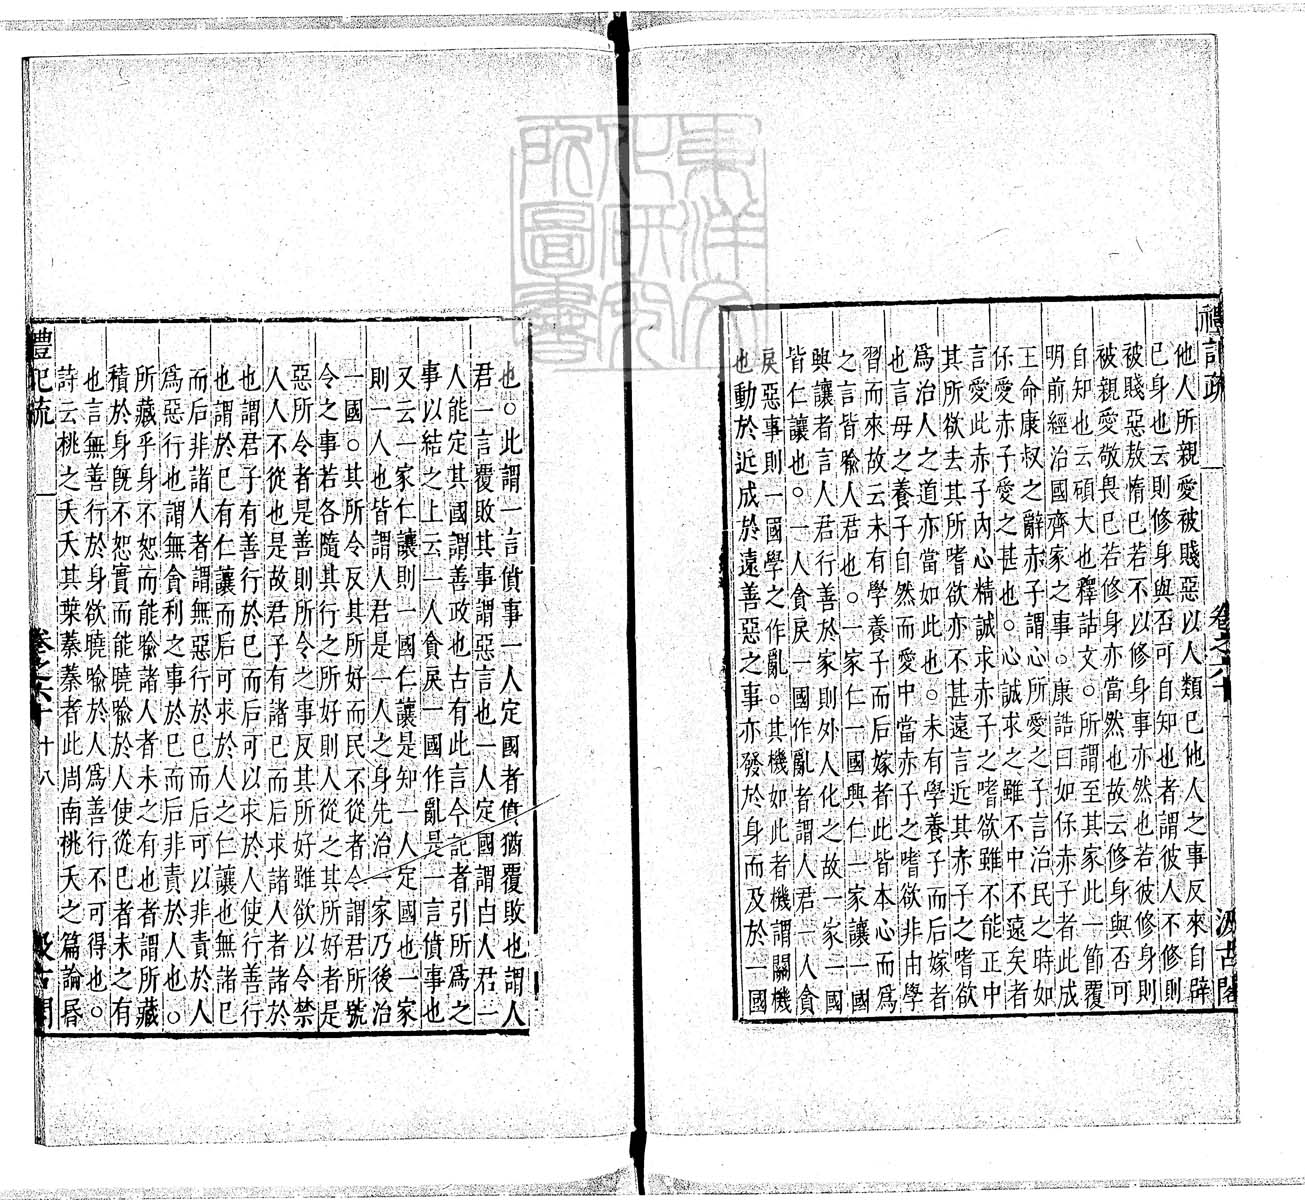 禮記疏 卷之六十 汲古閣
他人所親愛被賤惡以人類已他人之事反來自辟
已身也云則修身與否可自知也者謂彼人不修則
被賤惡敖惰已若不以修身事亦然也若彼修身則
被親愛敬畏已若修身亦當然也故云修身與否可
自知也云碩大也釋詁文。所謂至其家此一節覆
明前經治國齊家之事。康誥曰如保赤子者此成
王命康叔之辭赤子謂心所愛之子言治民之時如
保愛赤子愛之甚也。心誠求之雖不中不遠矣者
言愛此赤子內心精誠求赤子之嗜欲雖不能正中
其所欲去其所嗜欲亦不甚遠言近其赤子之嗜欲
爲治人之道亦當如此也。未有學養子而后嫁者
也言母之養子自然而愛中當赤子之嗜欲非由學
習而來故云未有學養子而后嫁者此皆本心而爲
之言皆喻人君也。一家仁一國興仁一家讓一國
興讓者言人君行善於家則外人化之故一家一國
皆仁讓也。一人貪戾一國作亂者謂人君一人貪
戾惡事則一國學之作亂。其機如此者機謂關機
也動於近成於遠善惡之事亦發於身而及於一國
也。此謂一言僨事一人定國者僨猶覆敗也謂人
君一言覆敗其事謂惡言也一人定國謂由人君一
人能定其國謂善政也古有此言今記者引所爲之
事以結之上云一人貪戾一國作亂是一言僨事也
又云一家仁讓則一國仁讓是知一人定國也一家
則一人也皆謂人君是一人之身先治一家乃後治
一國。其所令反其所好而民不從者令謂君所號
令之事若各隨其行之所好則人從之其所好者是
惡所令者是善則所令之事反其所好雖欲以令禁
人人不從也是故君子有諸已而后求諸人者諸於
也謂君子有善行於已而后可以求於人使行善行
也謂於已有仁讓而后可求於人之仁讓也無諸已
而后非諸人者謂無惡行於已而后可以非責於人
爲惡行也謂無貪利之事於已而后非責於人也。
所藏乎身不恕而能喻諸人者未之有也者謂所藏
積於身既不恕實而能曉喻於人使從已者未之有
也言無善行於身欲曉喻於人爲善行不可得也。
詩云桃之夭夭其葉蓁蓁者此周南桃夭之篇論昏
禮記疏 卷之六十 十八 汲古閣
東洋文
化研究
所圖書